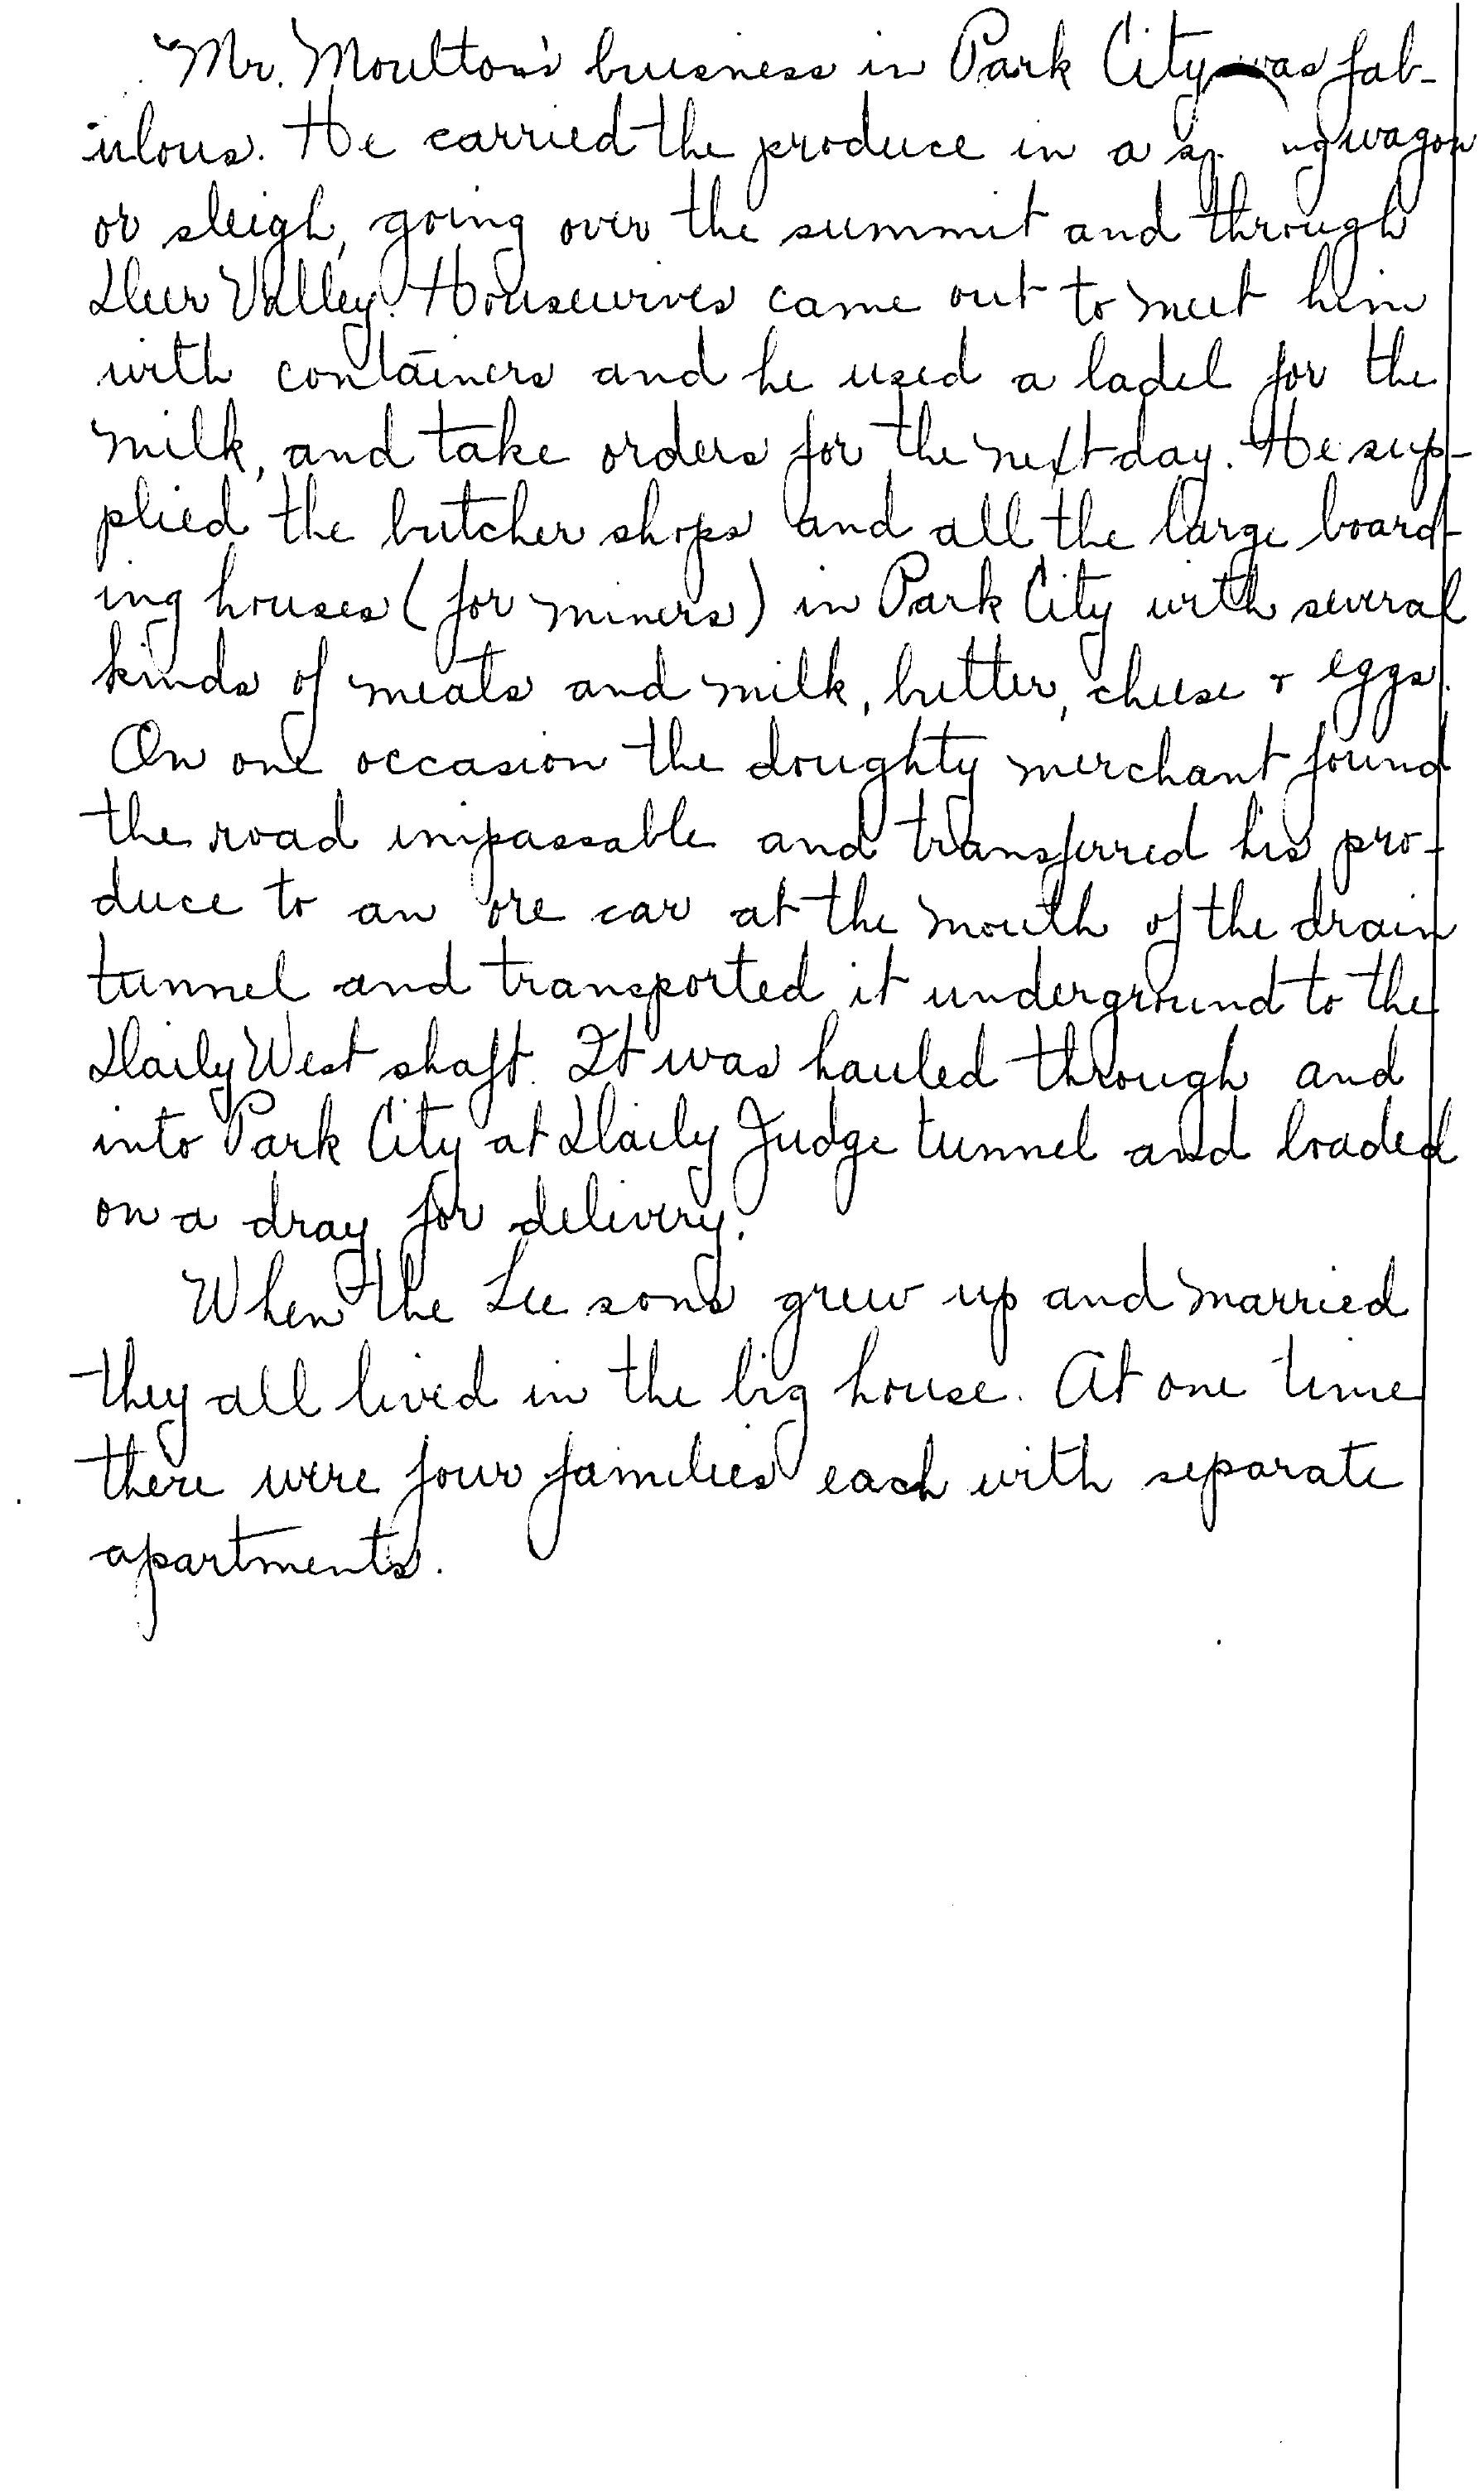 Mr. Moulton's buisness in Park City was fab-
ulous. He carried the produce in a wagon
or sleigh, going over the summit and through
Deer Valley. Housewives came out to meet him
with containers and he used a ladel for the
milk, and take orders for the next day. He sup-
plied the butcher shops and all the large board-
ing houses (for miners) in Park City with several
kinds of meats and milk, butter, cheese & eggs.
On one occasion the doughty merchant found
the road impassable and transferred his pro-
duce to an ore car at the mouth of the drain
tunnel and transported it underground to the
Daily West shaft. It was hauled through and
into Park City at Daily Judge tunnel and loaded
on a dray for delivery.
When the Lee sons grew up and married
they all lived in the big house. At one time
there were four families each with separate
apartments.